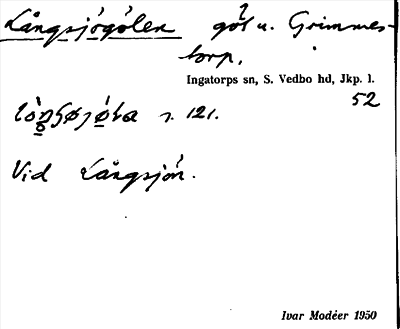 Långsjögölen göl u. Grimmes-
torp,
Ingatorps sn, S. Vedbo hd, Jkp. l.
52
s. 121.
Vid Långsjön.
Ivar Modéer 1950